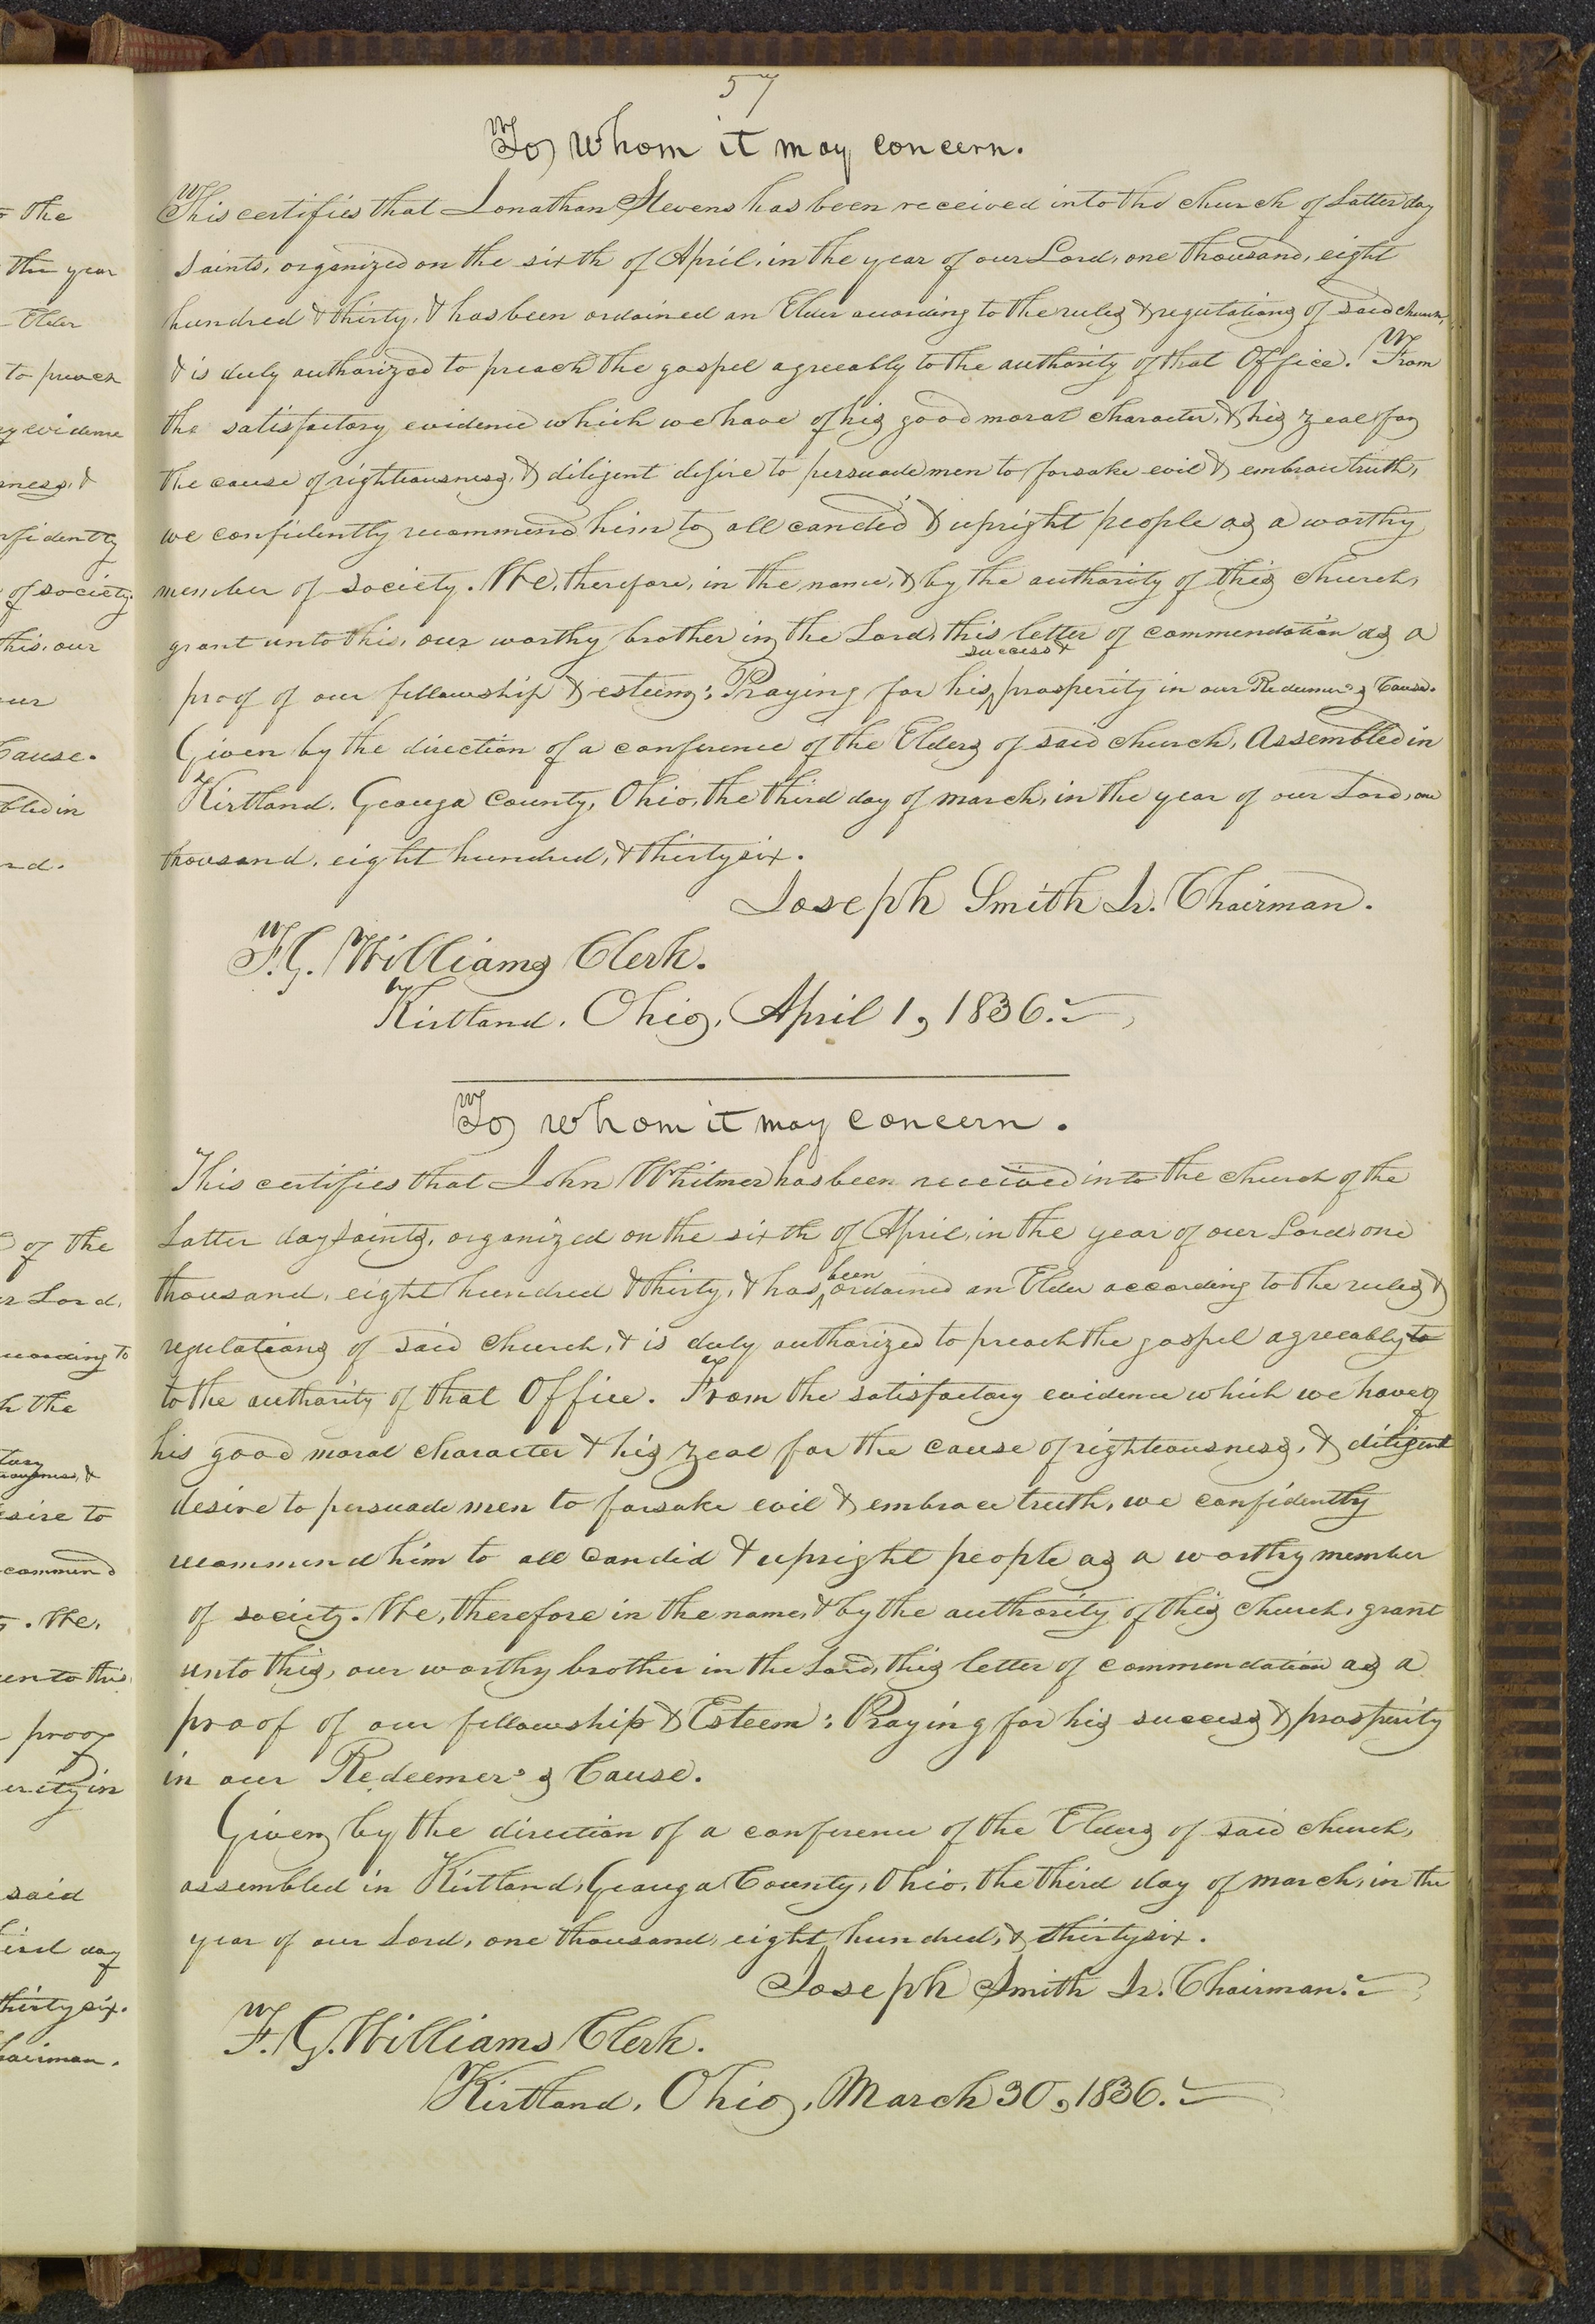 the
the year
Elder
to preach
evidence
&
of society
this, our
our
Cause.
in
57
To whom it may concern.
This certifies that Jonathan Stevens has been received into the church of Latter day
Saints, organized on the sixth of April, in the year of our Lord, one thousand, eight
hundred & thirty, & has been ordained an Elder according to the rules & regulations of said church,
& is duly authorized to preach the gospel agreeably to the authority of that Office. From
the satisfactory evidence which we have of his good moral character, & his zeal for
the cause of righteousness, & diligent desire to persuade men to forsake evil & embrace truth,
we confidently recommend him to all candid & upright people as a worthy
member of society. We, therefore, in the name, & by the authority of this church,
grant unto this, our worthy brother in the Lord, this letter of commendation as a
success &
proof of our fellowship & esteem: Praying for his ^ prosperity in our Redeemer's Cause.
Given by the direction of a conference of the Elders of said church, Assembled in
Kirtland, Geauga County, Ohio, the third day of march, in the year of our Lord, one
thousand, eight hundred, & thirty six.
Joseph Smith Jr. Chairman.
F. G. Williams Clerk.
Kirtland, Ohio, April 1, 1836.
To whom it may concern.
This certifies that John Whitmer has been received into the church of the
Latter day saints, organized on the sixth of April, in the year of our Lord, one
been
thousand, eight hundred & thirty, & has ^ ordained an Elder according to the rules &
regulations of said church, & is duly authorized to preach the gospel agreeably to
to the authority of that Office. From the satisfactory evidence which we have of
his good moral character & his zeal for the cause of righteousness, & diligent
desire to persuade men to forsake evil & embrace truth, we confidently
recommend him to all candid & upright people as a worthy member
of society. We, therefore in the name, & by the authority of this church, grant
unto this, our worthy brother in the Lord, this letter of commendation as a
proof of our fellowship & Esteem: Praying for his success & prosperity
in our Redeemer's Cause.
Given by the direction of a conference of the Elders of said church,
assembled in Kirtland, Geauga County, Ohio, the third day of march, in the
year of our Lord, one thousand, eight hundred, & thirty six.
Joseph Smith Jr. Chairman.
F. G. Williams Clerk.
Kirtland, Ohio, March 30, 1836.
of the
Lord,
to
the
&
to
We,
unto this
proof
in
said
day
six.